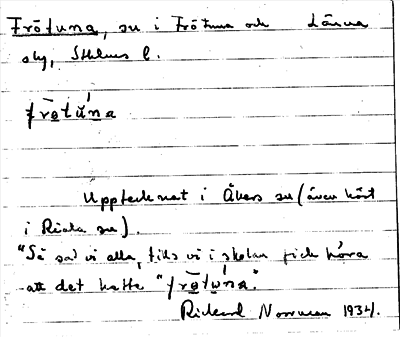 Frötuna, sn i Frötuna och Länna
slg, Sthlms l.
frọ̄tŭ́na
Upptecknat i Åkers sn (även hört
i Riala sn).
"Så sa' vi alla, tills vi i skolan fick höra
att det hette "frọ̄tụ́na".
Rickard Norrman 1934.